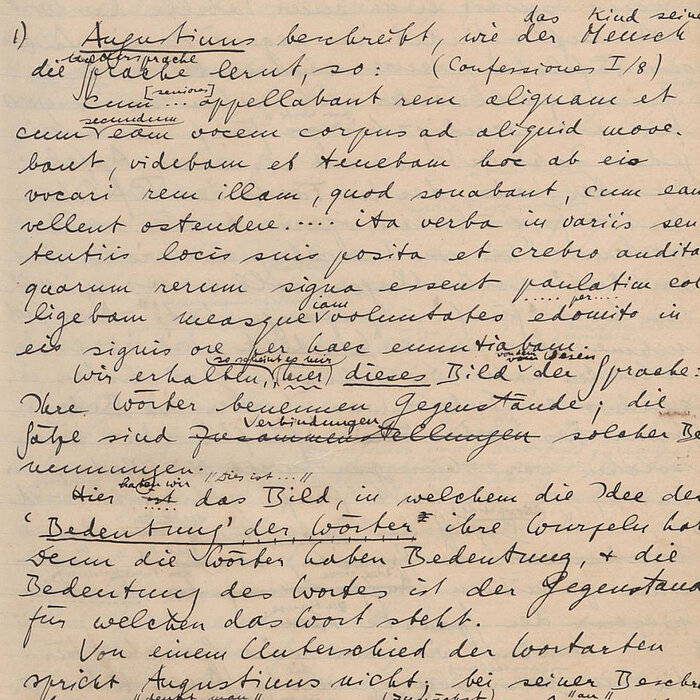 das Kind seine
1) Augustinus beschreibt, wie der Mensch
Muttersprache
die Sprache lernt, so: (Confessiones I/8)
[seniores]
Cum ... appellabant rem aliquam et
secundum
cum eam vocem corpus ad aliquid move-
bant, videbam et tenebam hoc ab eis
vocari rem illam, quod sonabant, cum eam
vellent ostendere. .... ita verba in variis sen
tentiis locis suis posita et crebro audita
quarum rerum signa essent paulatim col
iam per
ligebam measque voluntates edomito in
eis signis ore per haec enuntiabam.
so scheint es mir von dem Wesen
Wir erhalten, (hier) dieses Bild der Sprache:
Ihre Wörter benennen Gegenstände; die
Verbindungen
Sätze sind Zusammenstellungen solcher Be
nennungen.
haben wir "Dies ist ..."
Hier ist das Bild, in welchem die Idee der
'Bedeutung' der Wörter ihre Wurzeln hat
Denn die Wörter haben Bedeutung, + die
Bedeutung des Wortes ist der Gegenstand
für welchen das Wort steht.
Von einem Unterschied der Wortarten
spricht Augustinus nicht; bei seiner Besch
"denkt man" (zunächst) "an"